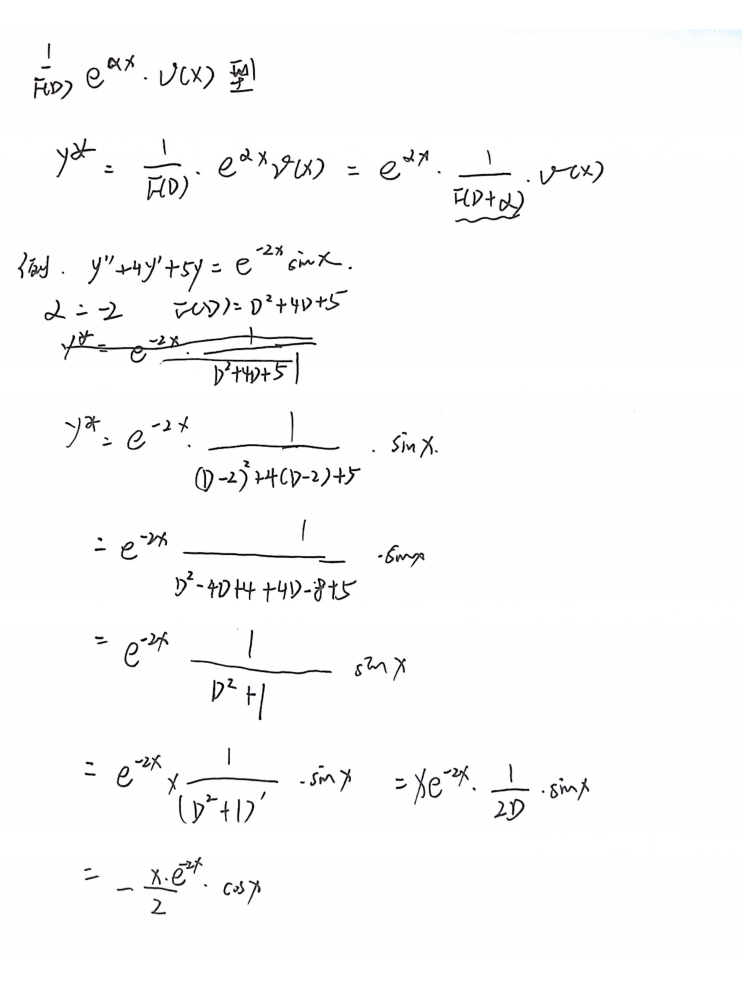 1/F(D) e^{αx}·v(x) 型
y* = 1/F(D) · e^{αx} v(x) = e^{αx} · 1/F(D+α) · v(x)
例. y''+4y'+5y = e^{-2x} sinx.
α = -2 F(D) = D²+4D+5
y* = e^{-2x} · 1/(D²+4D+5)
y* = e^{-2x} · 1/((D-2)²+4(D-2)+5) · sinx.
= e^{-2x} 1/(D²-4D+4+4D-8+5) · sinx
= e^{-2x} 1/(D²+1) sinx
= e^{-2x} x · 1/(D²+1)' · sinx = xe^{-2x} · 1/2D · sinx
= - x·e^{-2x}/2 · cosx